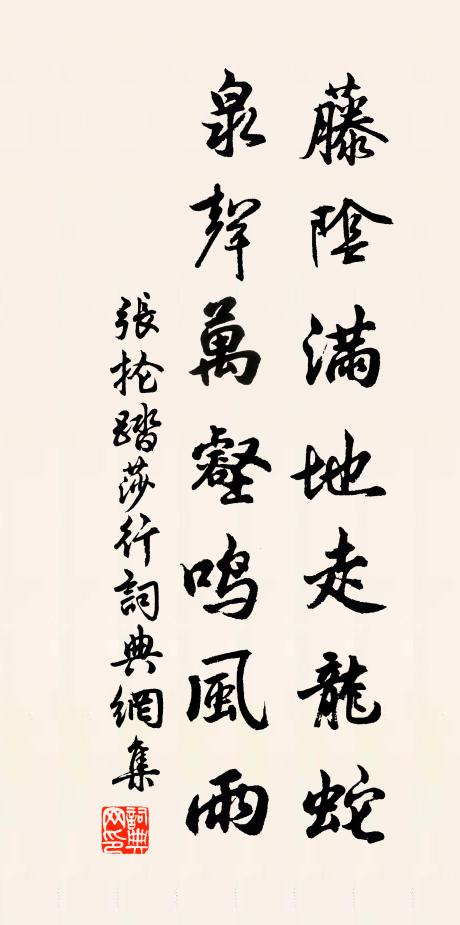 藤陰滿地走龍蛇
泉聲萬壑鳴風雨
張掄踏莎行詞典網集
詞典網印